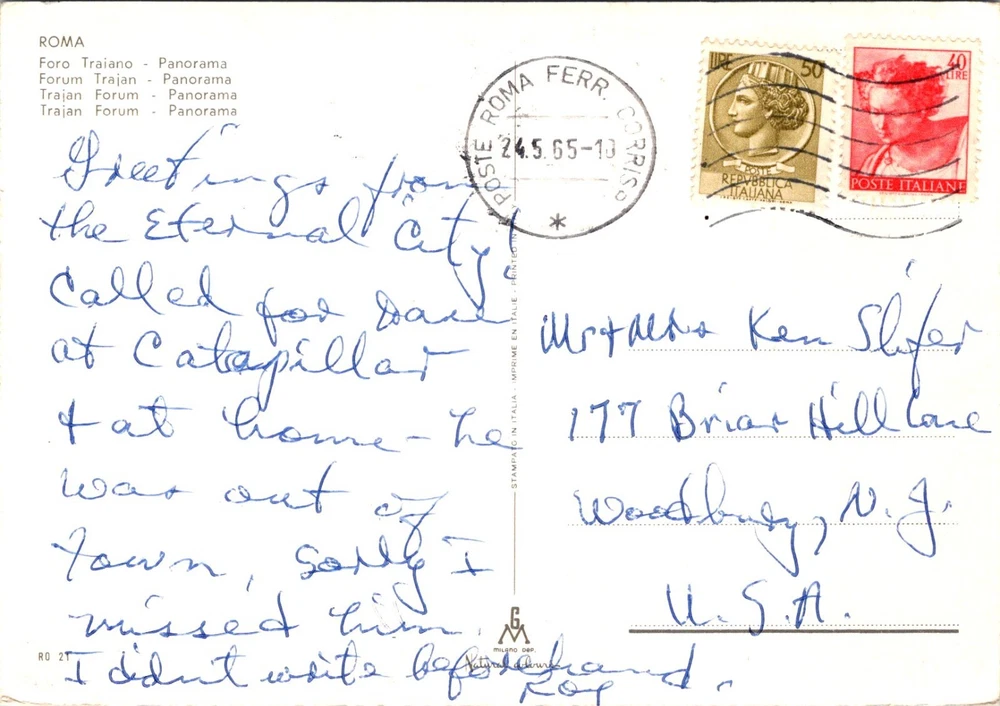 ROMA
Foro Traiano - Panorama
Forum Trajan - Panorama
Trajan Forum - Panorama
Trajan Forum - Panorama
Greetings from
the Eternal City!
Called for Dave
at Catapillar
+ at home - he
was out of
town, Sorry I
missed him.
I didn't write beforehand.
Roy
RO 21
STAMPATO IN ITALIA - IMPRIME EN ITALIE - PRINTED IN
G
M
MILANO DEP.
POSTE ROMA FERR. CORRISP.
24.5.65-18
*
LIRE 50
POSTE
REPVBBLICA
ITALIANA
40
LIRE
POSTE ITALIANE
Mr + Mrs Ken Slifer
177 Briar Hill Lane
Woodbury, N.J.
U.S.A.